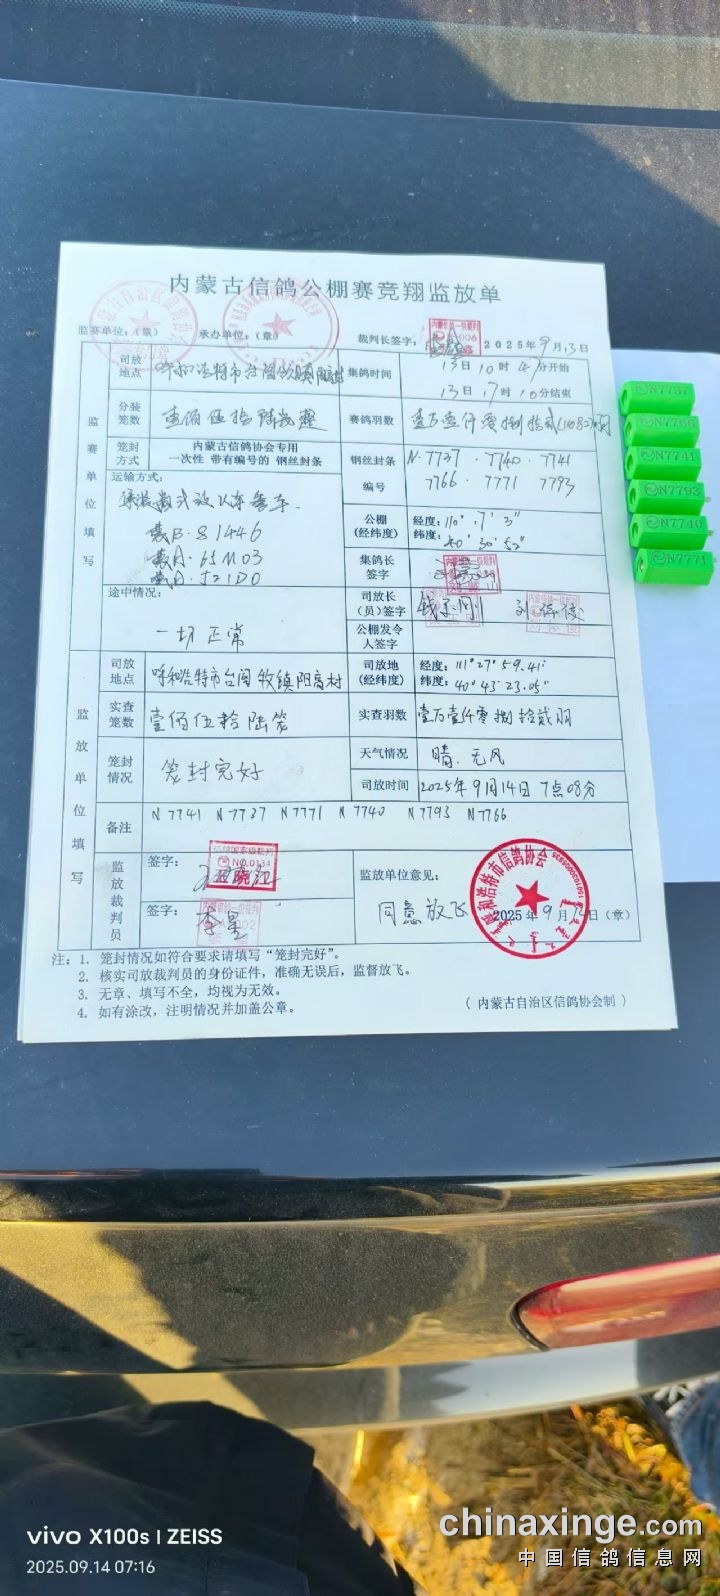 内蒙古信鸽公棚赛竞翔监放单
监赛单位：（章） 承办单位：（章） 裁判长签字： 2025年9月13日
监赛单位填写
司放地点 呼和浩特市台阁牧镇阳高村 集鸽时间 13日10时47分开始
13日17时10分结束
分装笼数 壹佰伍拾陆笼整 赛鸽羽数 壹万壹仟零捌拾贰(11082)羽
笼封方式 内蒙古信鸽协会专用
一次性 带有编号的 钢丝封条
钢丝封条编号 N·7737·7740·7741
7766·7771 7793
运输方式：
冀B·81446
公棚（经纬度） 经度：110°·7′3″
纬度：40°30′52″
集鸽长签字
途中情况： 一切正常
司放长（员）签字
公棚发令人签字
监放单位填写
司放地点 呼和浩特市台阁牧镇阳高村 司放地（经纬度） 经度：111°27′59.41″
纬度：40°43′23.05″
实查笼数 壹佰伍拾陆笼 实查羽数 壹万壹仟零捌拾贰羽
笼封情况 笼封完好 天气情况 晴．无风
司放时间 2025年9月14日7点08分
备注 N7741 N7737 N7771 N7740 N7793 N7766
监放裁判员 签字：
签字： 李星
NO.0134
监放单位意见：
同意放飞 2025年9月14日（章）
呼和浩特市信鸽协会
注：1. 笼封情况如符合要求请填写“笼封完好”。
2. 核实司放裁判员的身份证件，准确无误后，监督放飞。
3. 无章、填写不全，均视为无效。
4. 如有涂改，注明情况并加盖公章。
（内蒙古自治区信鸽协会制）
N7737
N7766
N7741
N7793
N7740
N7771
vivo X100s | ZEISS
2025.09.14 07:16
chinaxinge.com
中国信鸽信息网